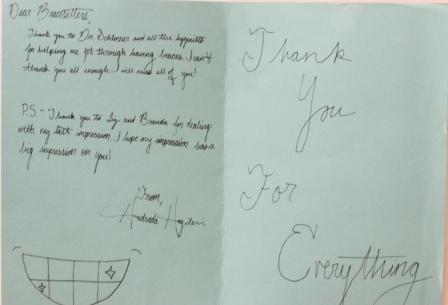 Dear Bracesetters,
Thank you to Dr. Schlosser and all the hygienists
for helping me get through having braces. I can't
thank you all enough. I will miss all of you!
P.S. - Thank you to Liz and Brenda for dealing
with my teeth impression. I hope my impression was a
big impression on you!
From,
Thank
You
For
Everything